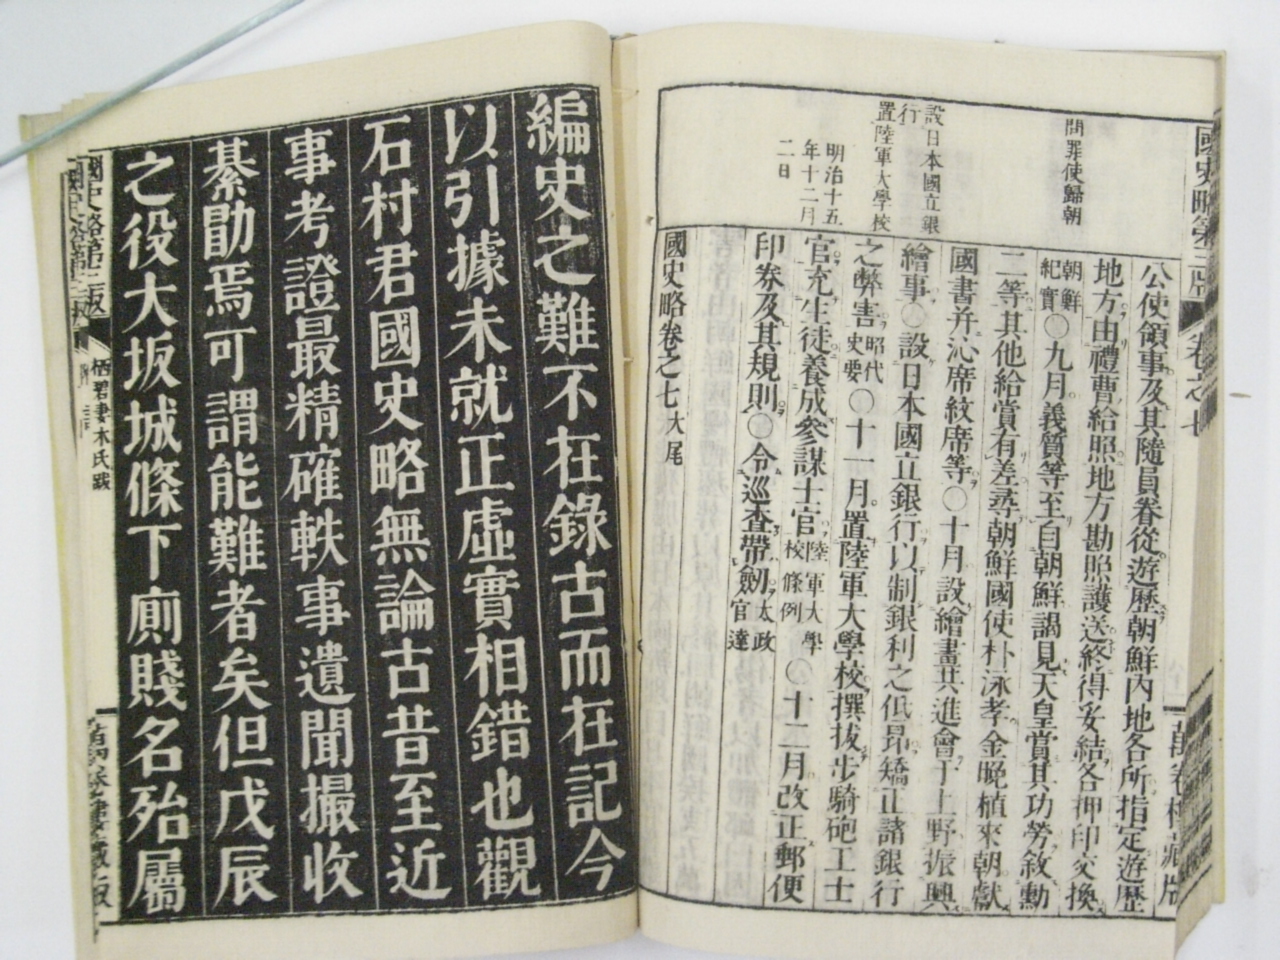 國史略第三版 卷之七 萬卷樓藏版
問罪使歸朝
設日本國立銀
行
置陸軍大學校
明治十五
年十二月
二日
公使領事及其隨員眷從遊歷朝鮮內地各所指定遊歷
地方由禮曹給照地方勘照護送終得妥結各押印交換
朝鮮紀實〇九月義質等至自朝鮮謁見天皇賞其功勞敘勳
二等其他給賞有差尋朝鮮國使朴泳孝金晚植來朝獻
國書并沁席紋席等〇十月設繪畫共進會于上野振興
繪事〇設日本國立銀行以制銀利之低昻矯正諸銀行
之弊害昭代史要〇十一月置陸軍大學校撰拔步騎砲工士
官充生徒養成參謀士官陸軍大學校條例〇十二月改正郵便
印券及其規則〇令巡査帶劒太政官達
國史略卷之七大尾
編史之難不在錄古而在記今
以引據未就正虛實相錯也觀
石村君國史略無論古昔至近
事考證最精確軼事遺聞撮收
綦勖焉可謂能難者矣但戊辰
之役大坂城條下廁賤名殆屬
國史略第三版